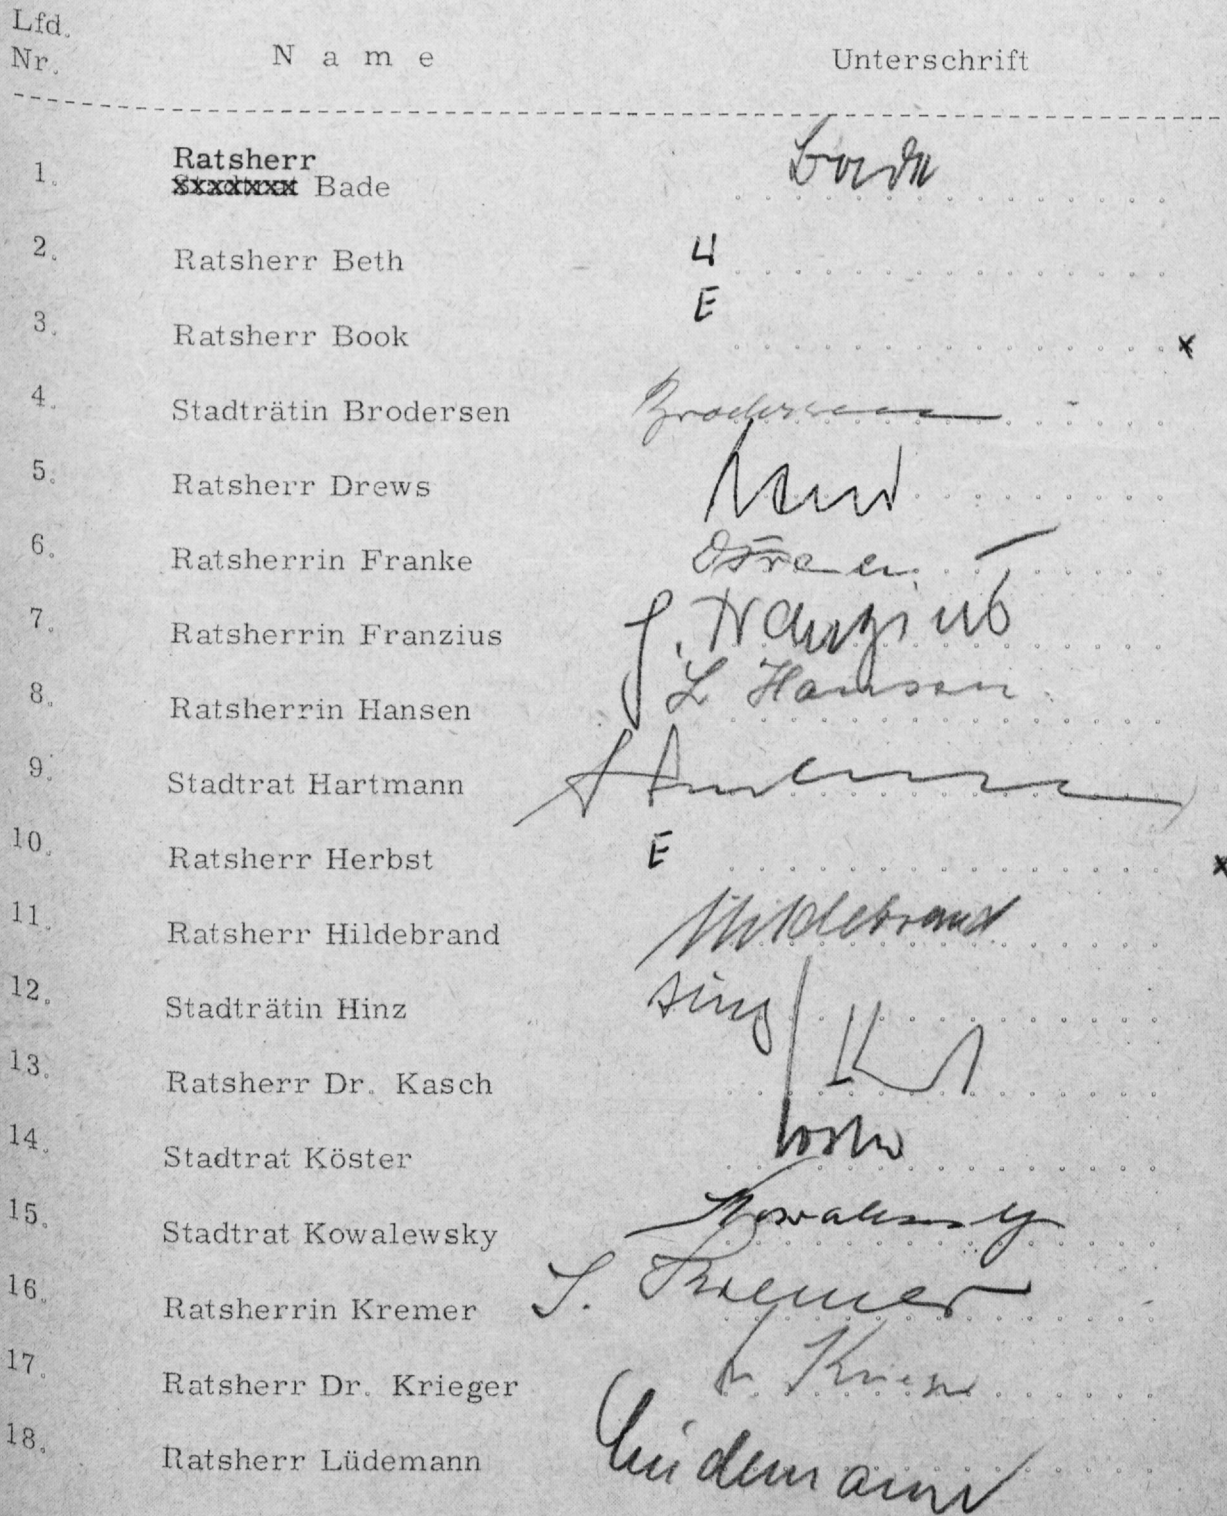 Lfd.
Nr. N a m e Unterschrift
Ratsherr
1. Stadtrat Bade Bade
2. Ratsherr Beth 4
E
3. Ratsherr Book x
4. Stadträtin Brodersen Brodersen
5. Ratsherr Drews
6. Ratsherrin Franke
7. Ratsherrin Franzius G. Franzius
8. Ratsherrin Hansen L Hansen
9. Stadtrat Hartmann Hartmann
10. Ratsherr Herbst E x
11. Ratsherr Hildebrand Hildebrand
12. Stadträtin Hinz Hinz
13. Ratsherr Dr. Kasch
14. Stadtrat Köster Köster
15. Stadtrat Kowalewsky Kowalewsky
16. Ratsherrin Kremer S. Kremer
17. Ratsherr Dr. Krieger Krieger
18. Ratsherr Lüdemann Lüdemann